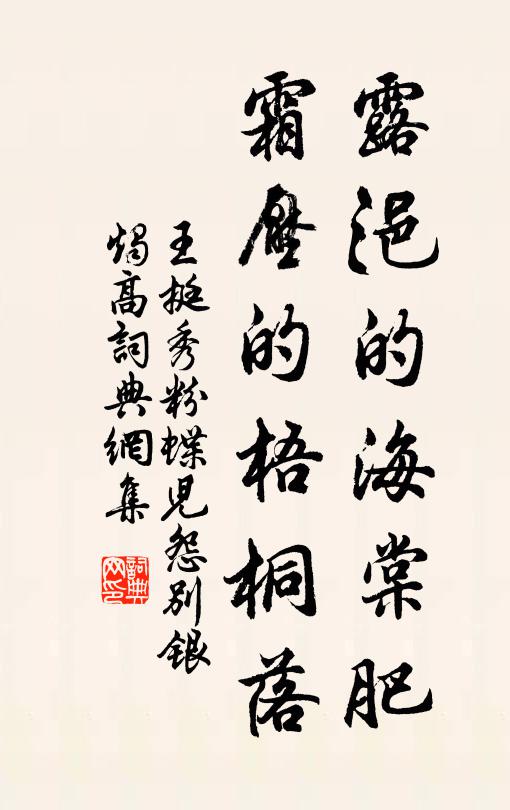 露浥的海棠肥
霜壓的梧桐落
王挺秀粉蝶兒怨别銀
燭高詞典網集
詞典
网印